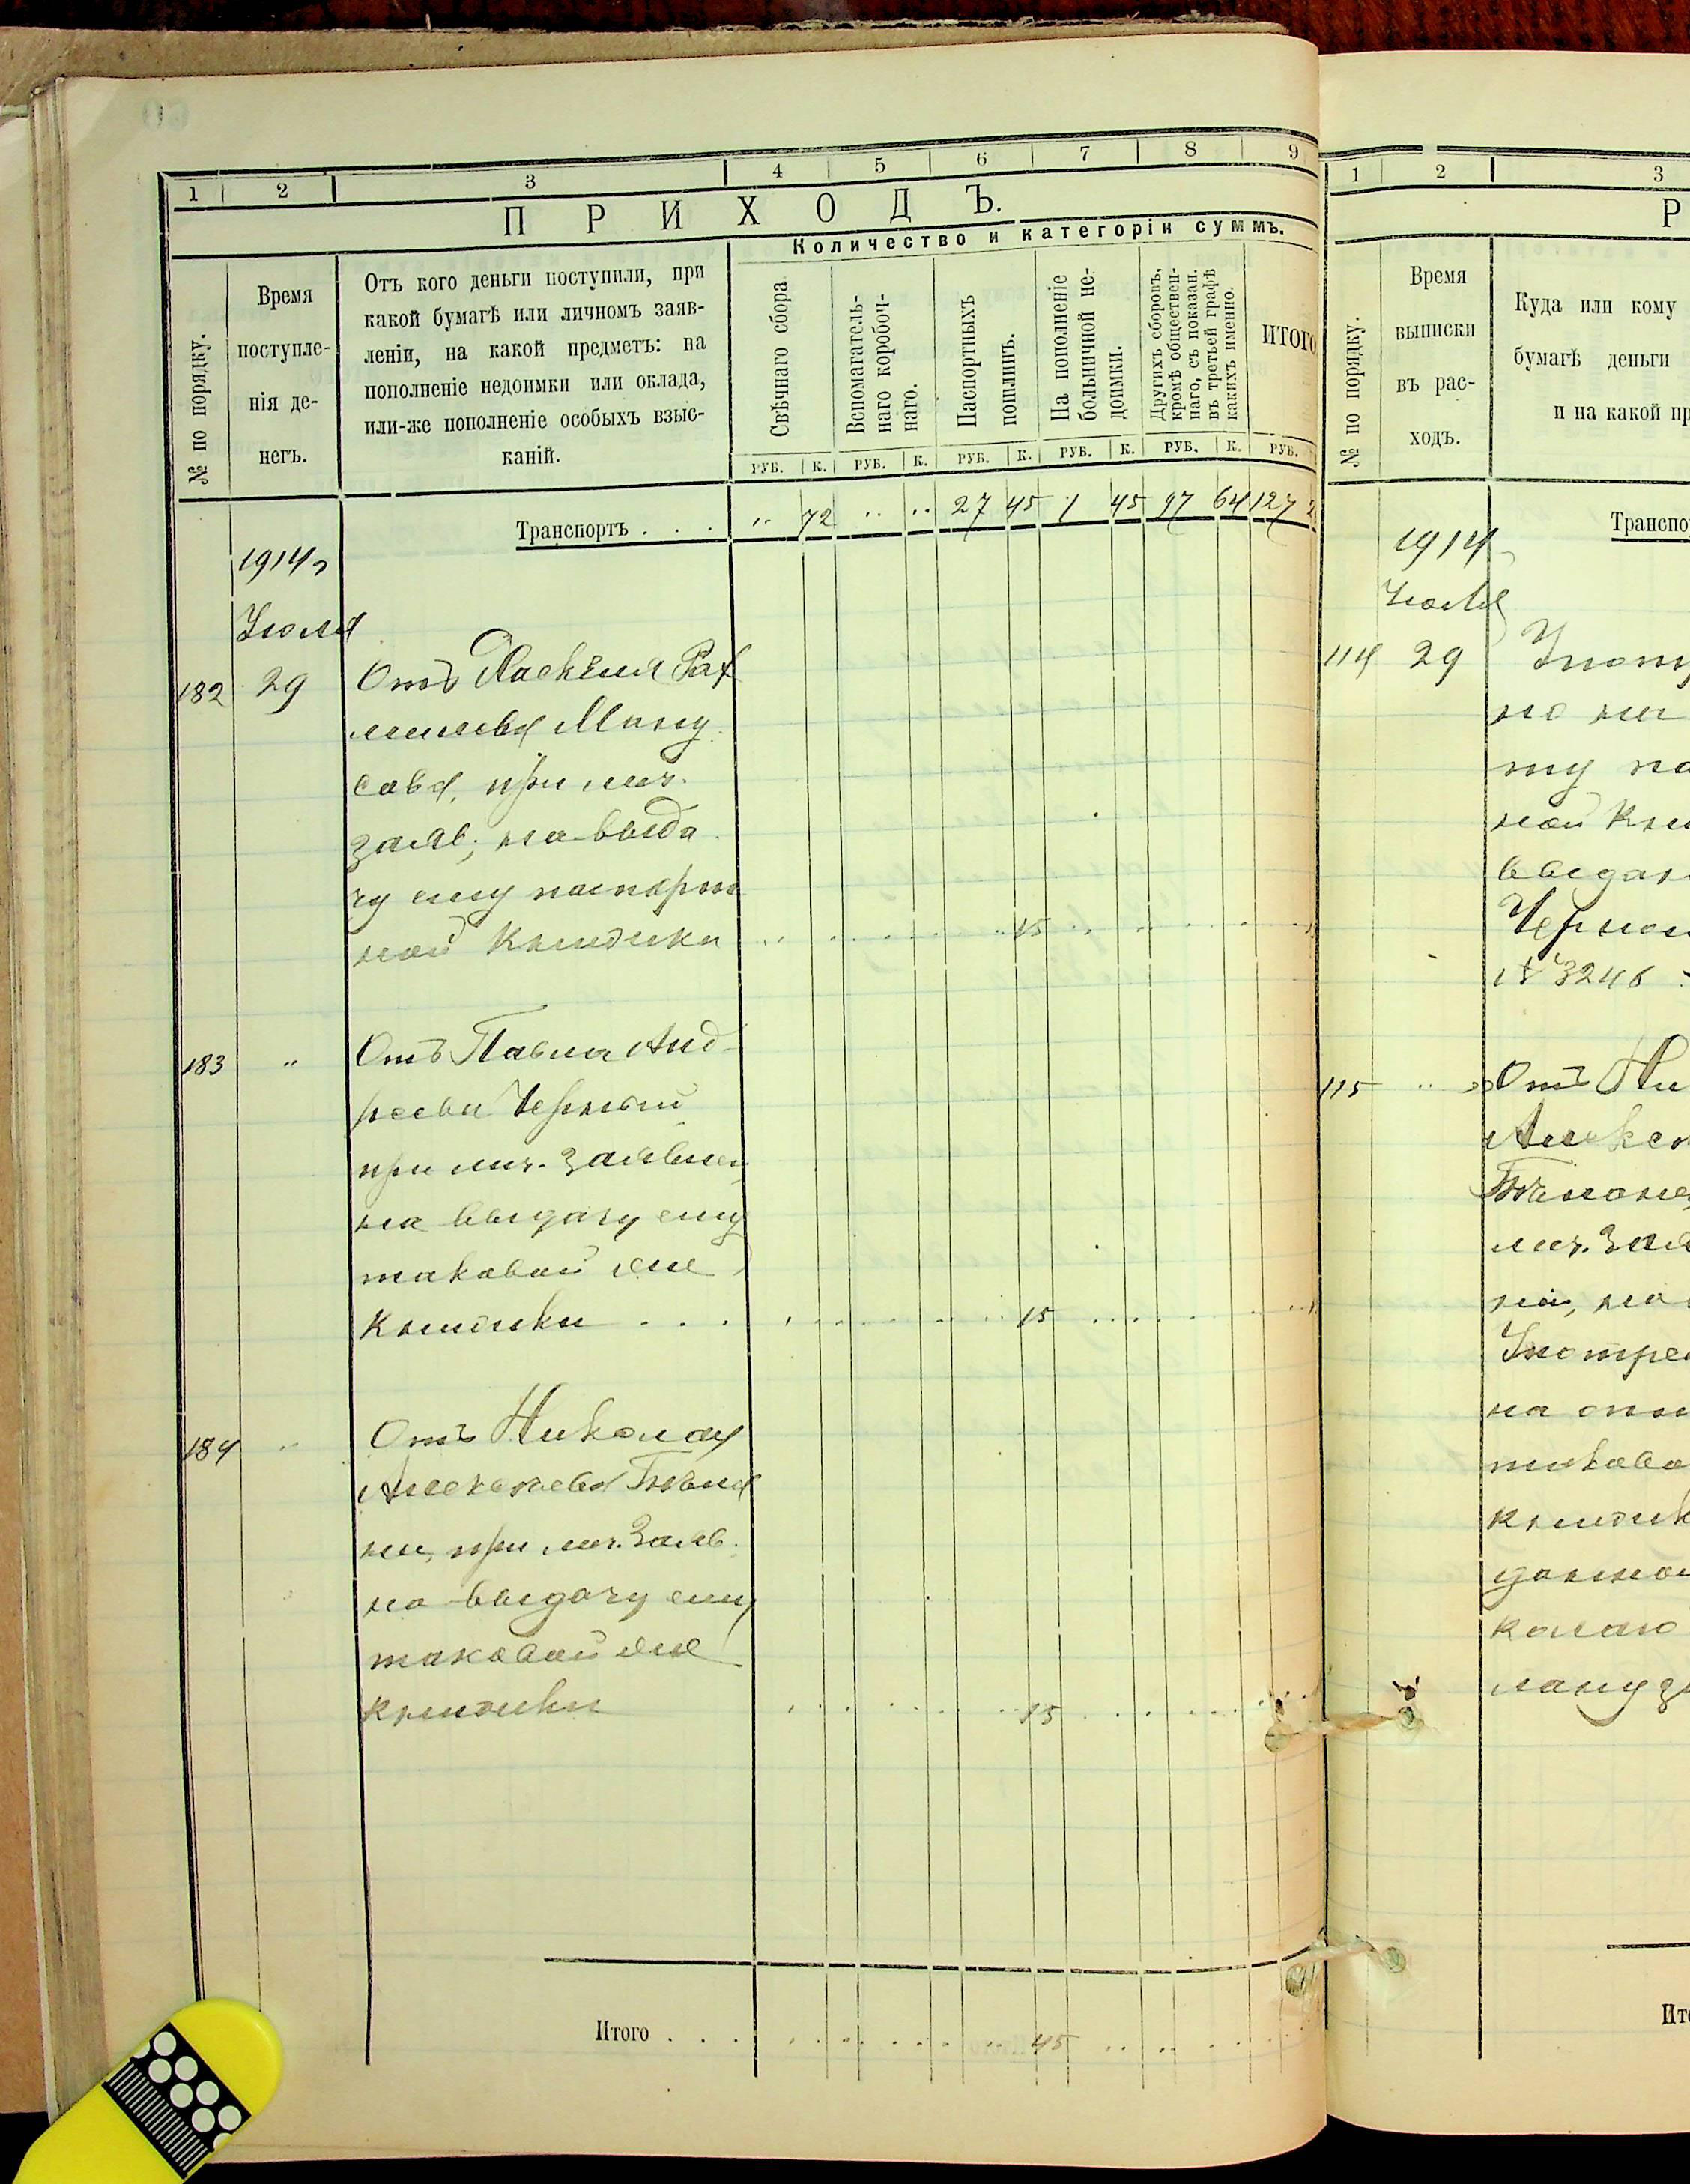 1 2 3 4 5 6 7 8 9
ПРИХОДЪ.
Количество и категоріи суммъ.
№ по порядку.
Время
поступле-
нія де-
негъ.
Отъ кого деньги поступили, при
какой бумагѣ или личномъ заяв-
леніи, на какой предметъ: на
пополненіе недоимки или оклада,
или-же пополненіе особыхъ взыс-
каній.
Свѣчнаго сбора
Вспомагатель-
наго коробоч-
наго.
Паспортныхъ
пошлинъ.
На пополненіе
больничной не-
доимки.
Другихъ сборовъ,
кромѣ обществен-
наго, съ показан.
въ третьей графѣ
какихъ именно.
ИТОГО
РУБ. К. РУБ. К. РУБ. К. РУБ. К. РУБ. К. РУБ.
Транспортъ . . . „ 72 „ „ 27 45 1 45 97 64 127
1914 г
Іюля
182 29 Отъ
при лич.
заяв; на выда
чу ему паспорт
ной книжки 15
183 „ Отъ Павла Анд-
реева Черный
при лич. заявлен,
на выдачу ему
таковой же
книжки . . . 15
184 „ Отъ Николая
Алексѣева
при лич. заяв.
на выдачу ему
таковой же
книжки 15
Итого . . . 45
1 2 3
Р
№ по порядку.
Время
выписки
въ рас-
ходъ.
Куда или кому
бумагѣ деньги
и на какой пр
Транспо
1914
Іюля
114 29
но на
ту па
ной кни
выдан
Черном
№ 3246
115 „ Отъ Ни
Алексѣ
лич. заяв
на
таково
книжк
данной
колаю
Ит